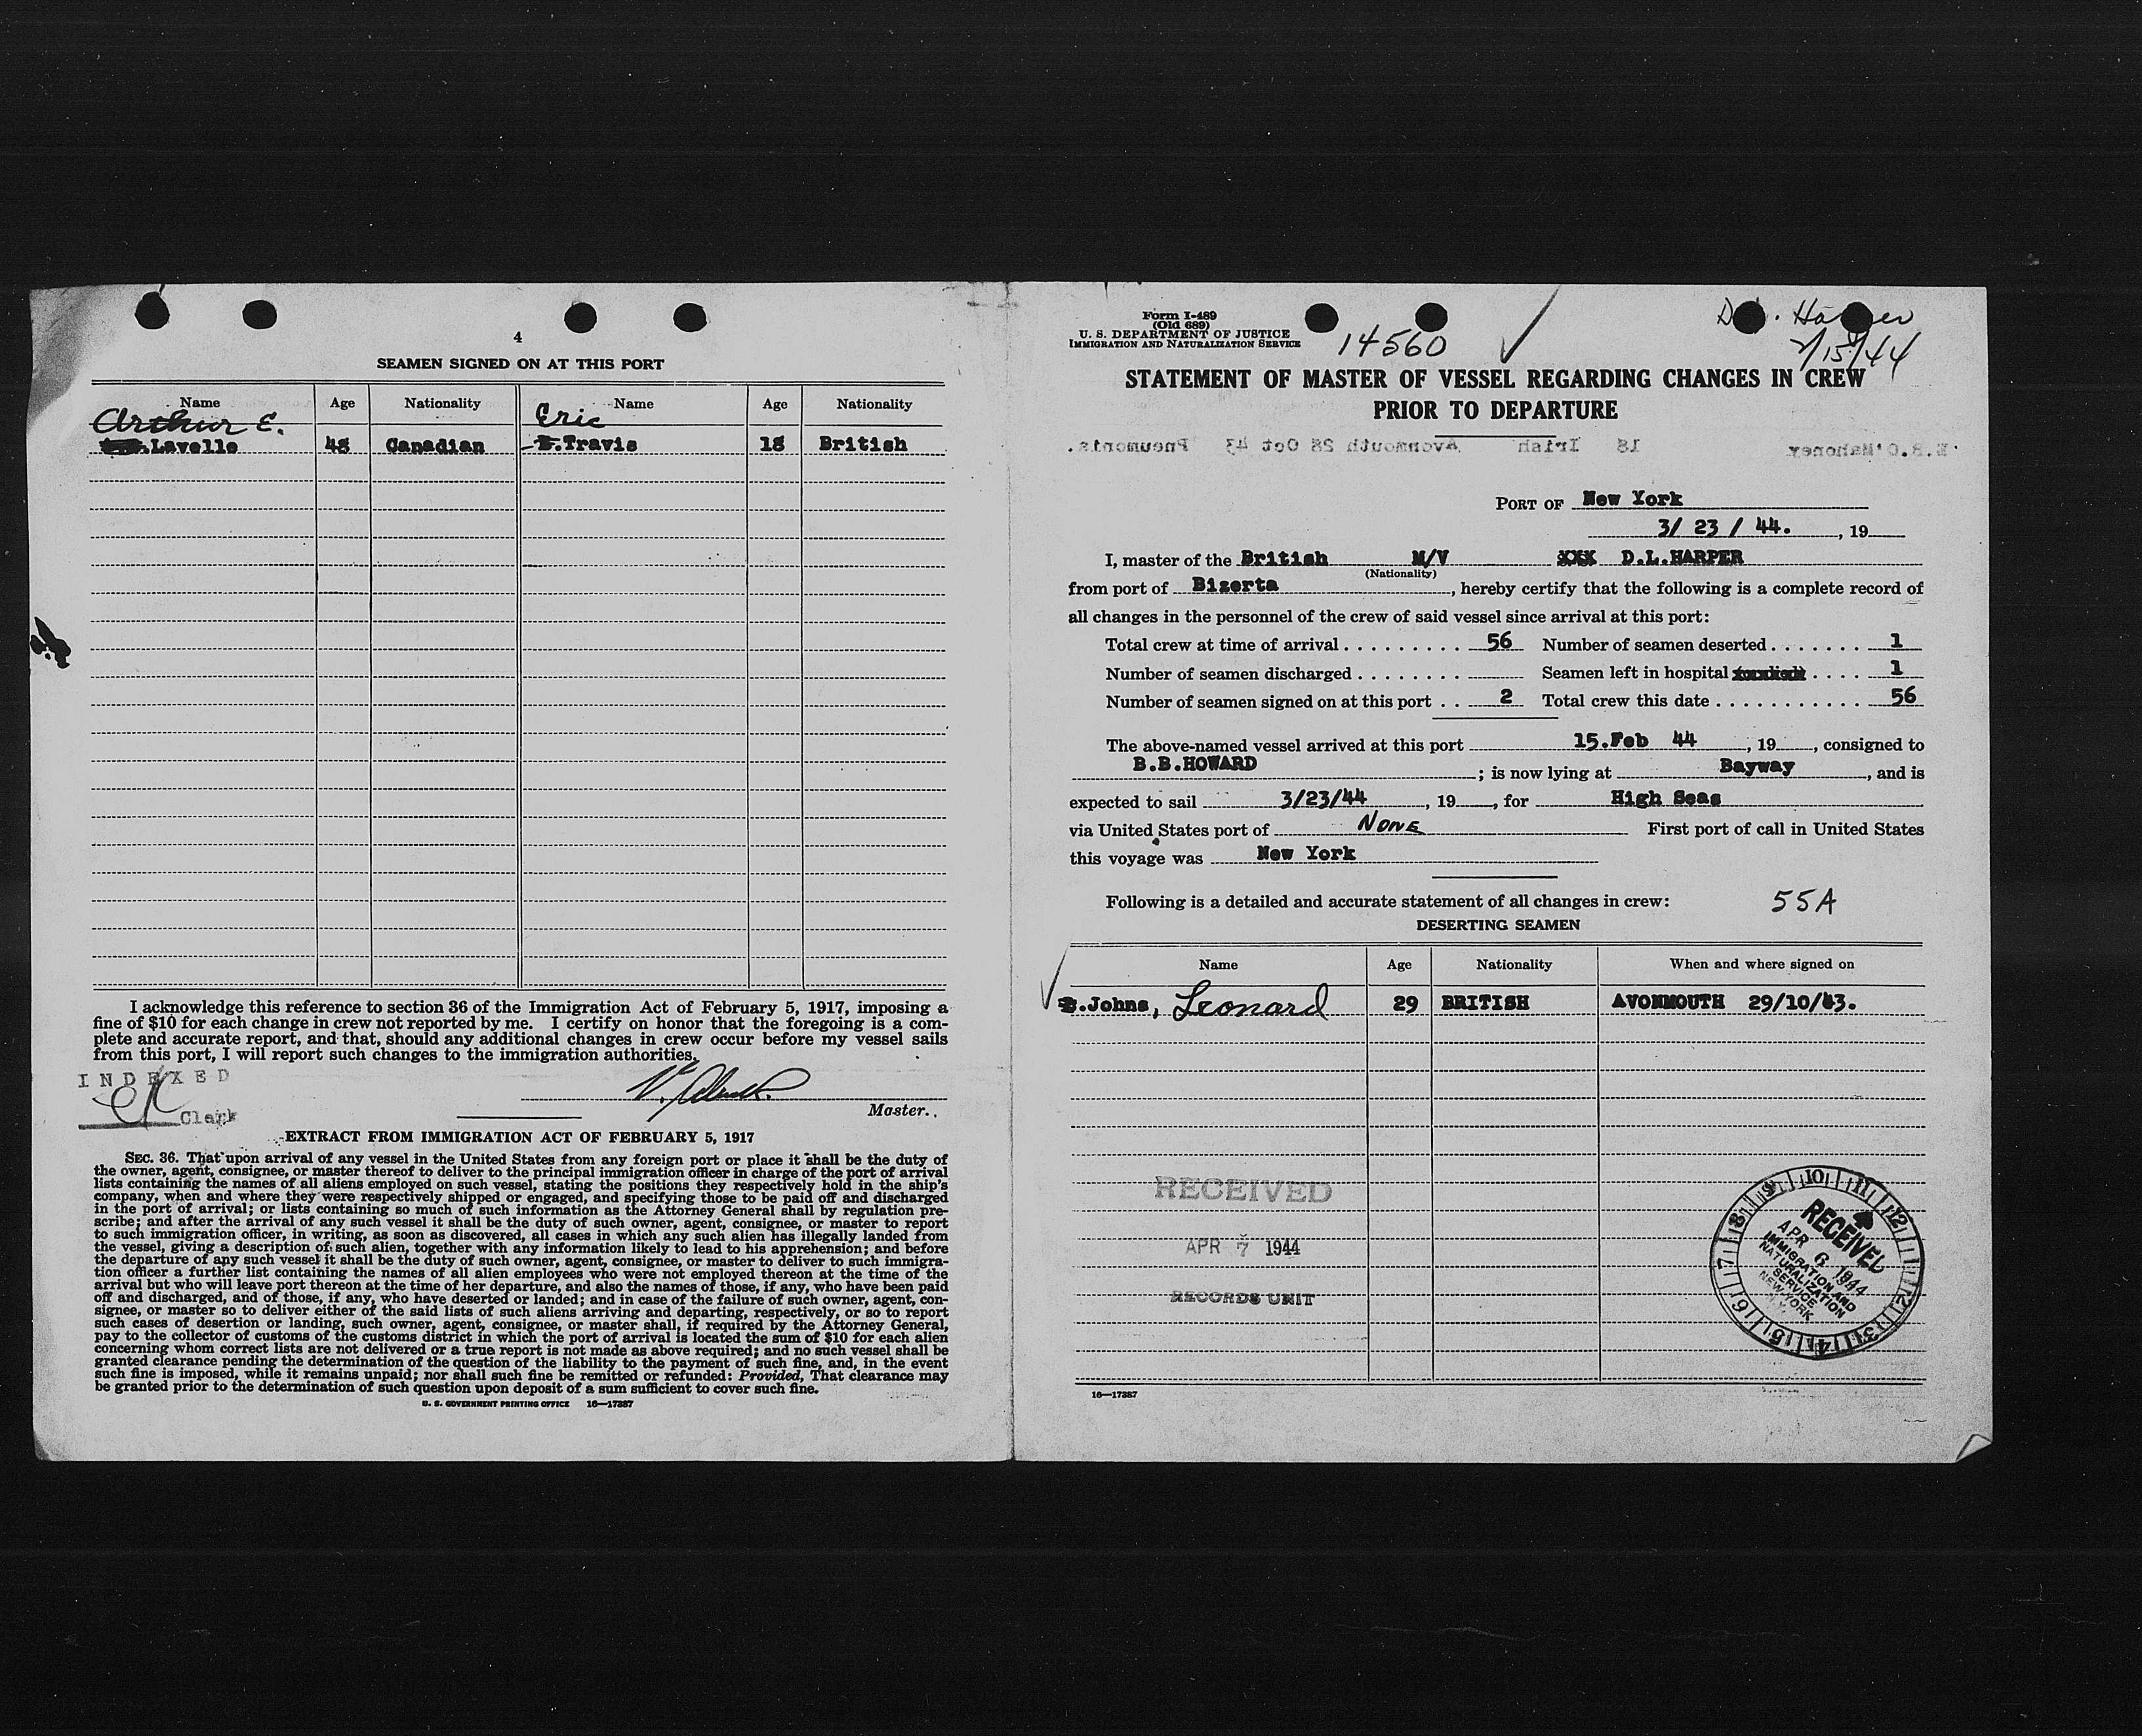 4
SEAMEN SIGNED ON AT THIS PORT
Name Age Nationality Name Age Nationality
Arthur E. Eric
Lavelle 48 Canadian Travis 18 British
I acknowledge this reference to section 36 of the Immigration Act of February 5, 1917, imposing a
fine of $10 for each change in crew not reported by me. I certify on honor that the foregoing is a com-
plete and accurate report, and that, should any additional changes in crew occur before my vessel sails
from this port, I will report such changes to the immigration authorities.
INDEXED
Clerk
Master.
EXTRACT FROM IMMIGRATION ACT OF FEBRUARY 5, 1917
SEC. 36. That upon arrival of any vessel in the United States from any foreign port or place it shall be the duty of
the owner, agent, consignee, or master thereof to deliver to the principal immigration officer in charge of the port of arrival
lists containing the names of all aliens employed on such vessel, stating the positions they respectively hold in the ship's
company, when and where they were respectively shipped or engaged, and specifying those to be paid off and discharged
in the port of arrival; or lists containing so much of such information as the Attorney General shall by regulation pre-
scribe; and after the arrival of any such vessel it shall be the duty of such owner, agent, consignee, or master to report
to such immigration officer, in writing, as soon as discovered, all cases in which any such alien has illegally landed from
the vessel, giving a description of such alien, together with any information likely to lead to his apprehension; and before
the departure of any such vessel it shall be the duty of such owner, agent, consignee, or master to deliver to such immigra-
tion officer a further list containing the names of all alien employees who were not employed thereon at the time of the
arrival but who will leave port thereon at the time of her departure, and also the names of those, if any, who have been paid
off and discharged, and of those, if any, who have deserted or landed; and in case of the failure of such owner, agent, con-
signee, or master so to deliver either of the said lists of such aliens arriving and departing, respectively, or so to report
such cases of desertion or landing, such owner, agent, consignee, or master shall, if required by the Attorney General,
pay to the collector of customs of the customs district in which the port of arrival is located the sum of $10 for each alien
concerning whom correct lists are not delivered or a true report is not made as above required; and no such vessel shall be
granted clearance pending the determination of the question of the liability to the payment of such fine, and, in the event
such fine is imposed, while it remains unpaid; nor shall such fine be remitted or refunded: Provided, That clearance may
be granted prior to the determination of such question upon deposit of a sum sufficient to cover such fine.
U. S. GOVERNMENT PRINTING OFFICE 16—17387
Form I-489
(Old 689)
U. S. DEPARTMENT OF JUSTICE
IMMIGRATION AND NATURALIZATION SERVICE
14560
D. Harper
2/15/44
STATEMENT OF MASTER OF VESSEL REGARDING CHANGES IN CREW
PRIOR TO DEPARTURE
E.R.O'Mahoney 18 Irish Avonmouth 28 Oct 43 Pneumonia.
PORT OF New York
3/ 23 / 44. , 19
I, master of the British M/V XXX D.L.HARPER
(Nationality)
from port of Bizerta , hereby certify that the following is a complete record of
all changes in the personnel of the crew of said vessel since arrival at this port:
Total crew at time of arrival . . . . . . . . . 56 Number of seamen deserted . . . . . . . 1
Number of seamen discharged . . . . . . . . Seamen left in hospital . . . . 1
Number of seamen signed on at this port . . 2 Total crew this date . . . . . . . . . . . 56
The above-named vessel arrived at this port 15.Feb 44 , 19 , consigned to
B.B.HOWARD ; is now lying at Bayway , and is
expected to sail 3/23/44 , 19 , for High Seas
via United States port of NONE First port of call in United States
this voyage was New York
Following is a detailed and accurate statement of all changes in crew: 55A
DESERTING SEAMEN
Name Age Nationality When and where signed on
Johns, Leonard 29 BRITISH AVONMOUTH 29/10/43.
RECEIVED
APR 7 1944
RECORDS UNIT
7 8 9 10 11 12 1 2 3 4 5 6
RECEIVED
APR 6 1944
IMMIGRATION AND
NATURALIZATION
SERVICE
NEW YORK
N.Y.
16—17387